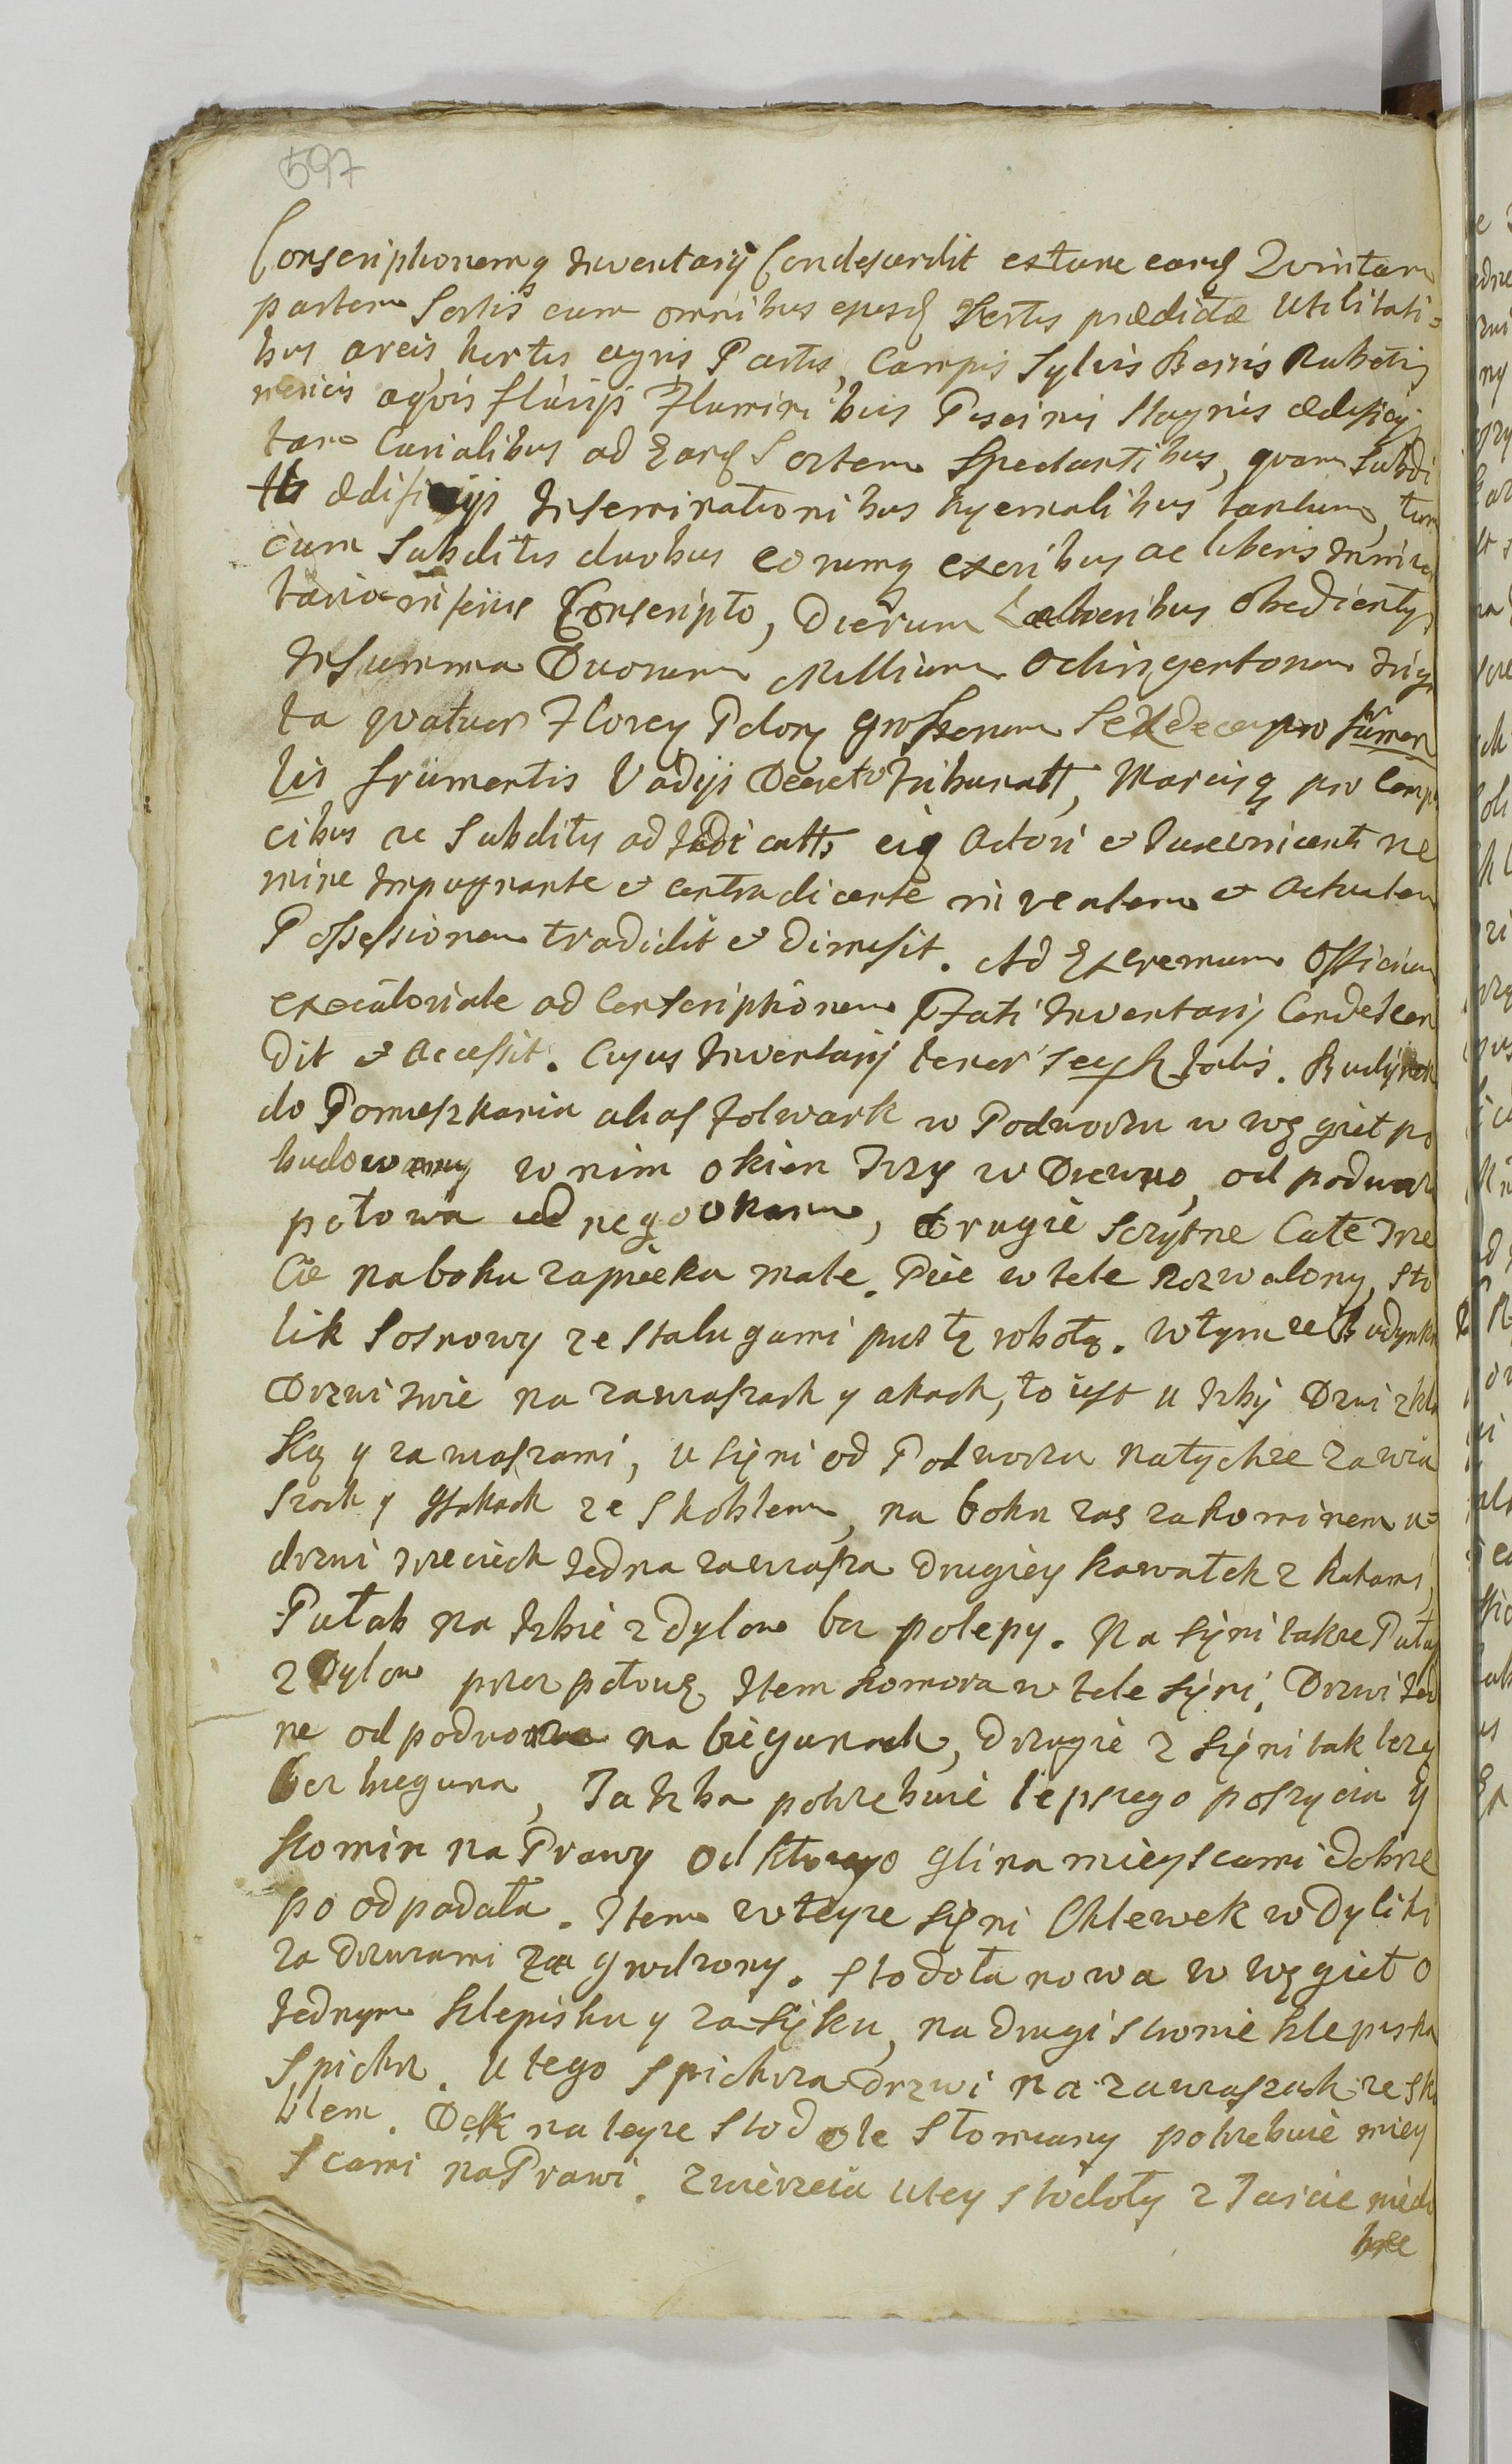 597
Conscriptionemq Inventarij Condescendit extunc eandē Quintam
partem Sortis cum omnibus ejusdē Sortis prædictæ Utilitati=
bus areis, hortis agris Pratis, Campis Sylvis Borris Rubetis
mericis aqvis fluvijs Fluminibus Piscinis Stagnis ædificijs
tam Curialibus ad Eandē Sortem Spectantibus, quam Subdi
tts ædificijs Inseminationibus hyemalibus tantum, tum
cum Subditis duobus eorumq uxoribus ac liberis In inven
tario inferius Conscripto, Dierum Laboribus obedientijs
In summa Duorum Millium Octingentorum trigi
ta qvatuor Florey Polory Grossorum Sexdecem pro fürmen
tis frümentis Vadijs Decreto Tribunatt, Marcisq pro Compe
cibus ac Subditis adjudicatts eiq Actori et Juxevincenti ne
mine Impugnante et contradicente in realem et actualem
Possessionem tradidit et dimisit. Ad Extremum Officium
executoriale ad Conscriptionem Pfati Inventarij Condescen
dit et Accessit. Cujus Inventarij tenor seqr talis. Budynek
do Pomieszkania alias Folwark w Podworzu w węgieł po
budowany w nim okien Trzy w Drewno, od podworza
połowa iednego okna, drugie Szczytne Całe Trze
Cie na boku zapieka małe. Piec w tele rozwalony, sto
lik Sosnowy ze stalugami pustą robotą. W tymze Budynku
Drzwi troie na zawiasach y akach, to iest u Izby Drzwi z kla
ską y zawiasami, u Sięni od Podworza na tychze zawia
sach y Hakach ze Skoblem, na boku zas za kominem u=
drzwi trzecich Jedna zawiasa drugiey kawałek z Hakami,
Pułab na Izbie z dylow bez polepy. Na Sięni takze Pułap
z Dylow przez połowę. Item Komora w tele Sięni, Drzwi Jed
ne od podworza na biegunach, drugie z Sięni tak leży
bez bieguna, Ta Izba potrzebuie lepszego poszycia y
Komin naPrawy od Ktorego glina mieyscami dobrze
po odpadała. Item w teyze Sięni Chlewek w Dyliki
za Drzwiami za grodzony. Stodoła nowa w węgieł o
Jednym klepisku y zasięku, na drugi stronie klepiska
Spichrz. U tego Spichrza drzwi na zawiasach ze sko
blem. Dach na teyze Stodole Słomiany potrzebuie miey
scami naPrawi. Zwierzeia u tey stodoły z Tarcic niedo
brze